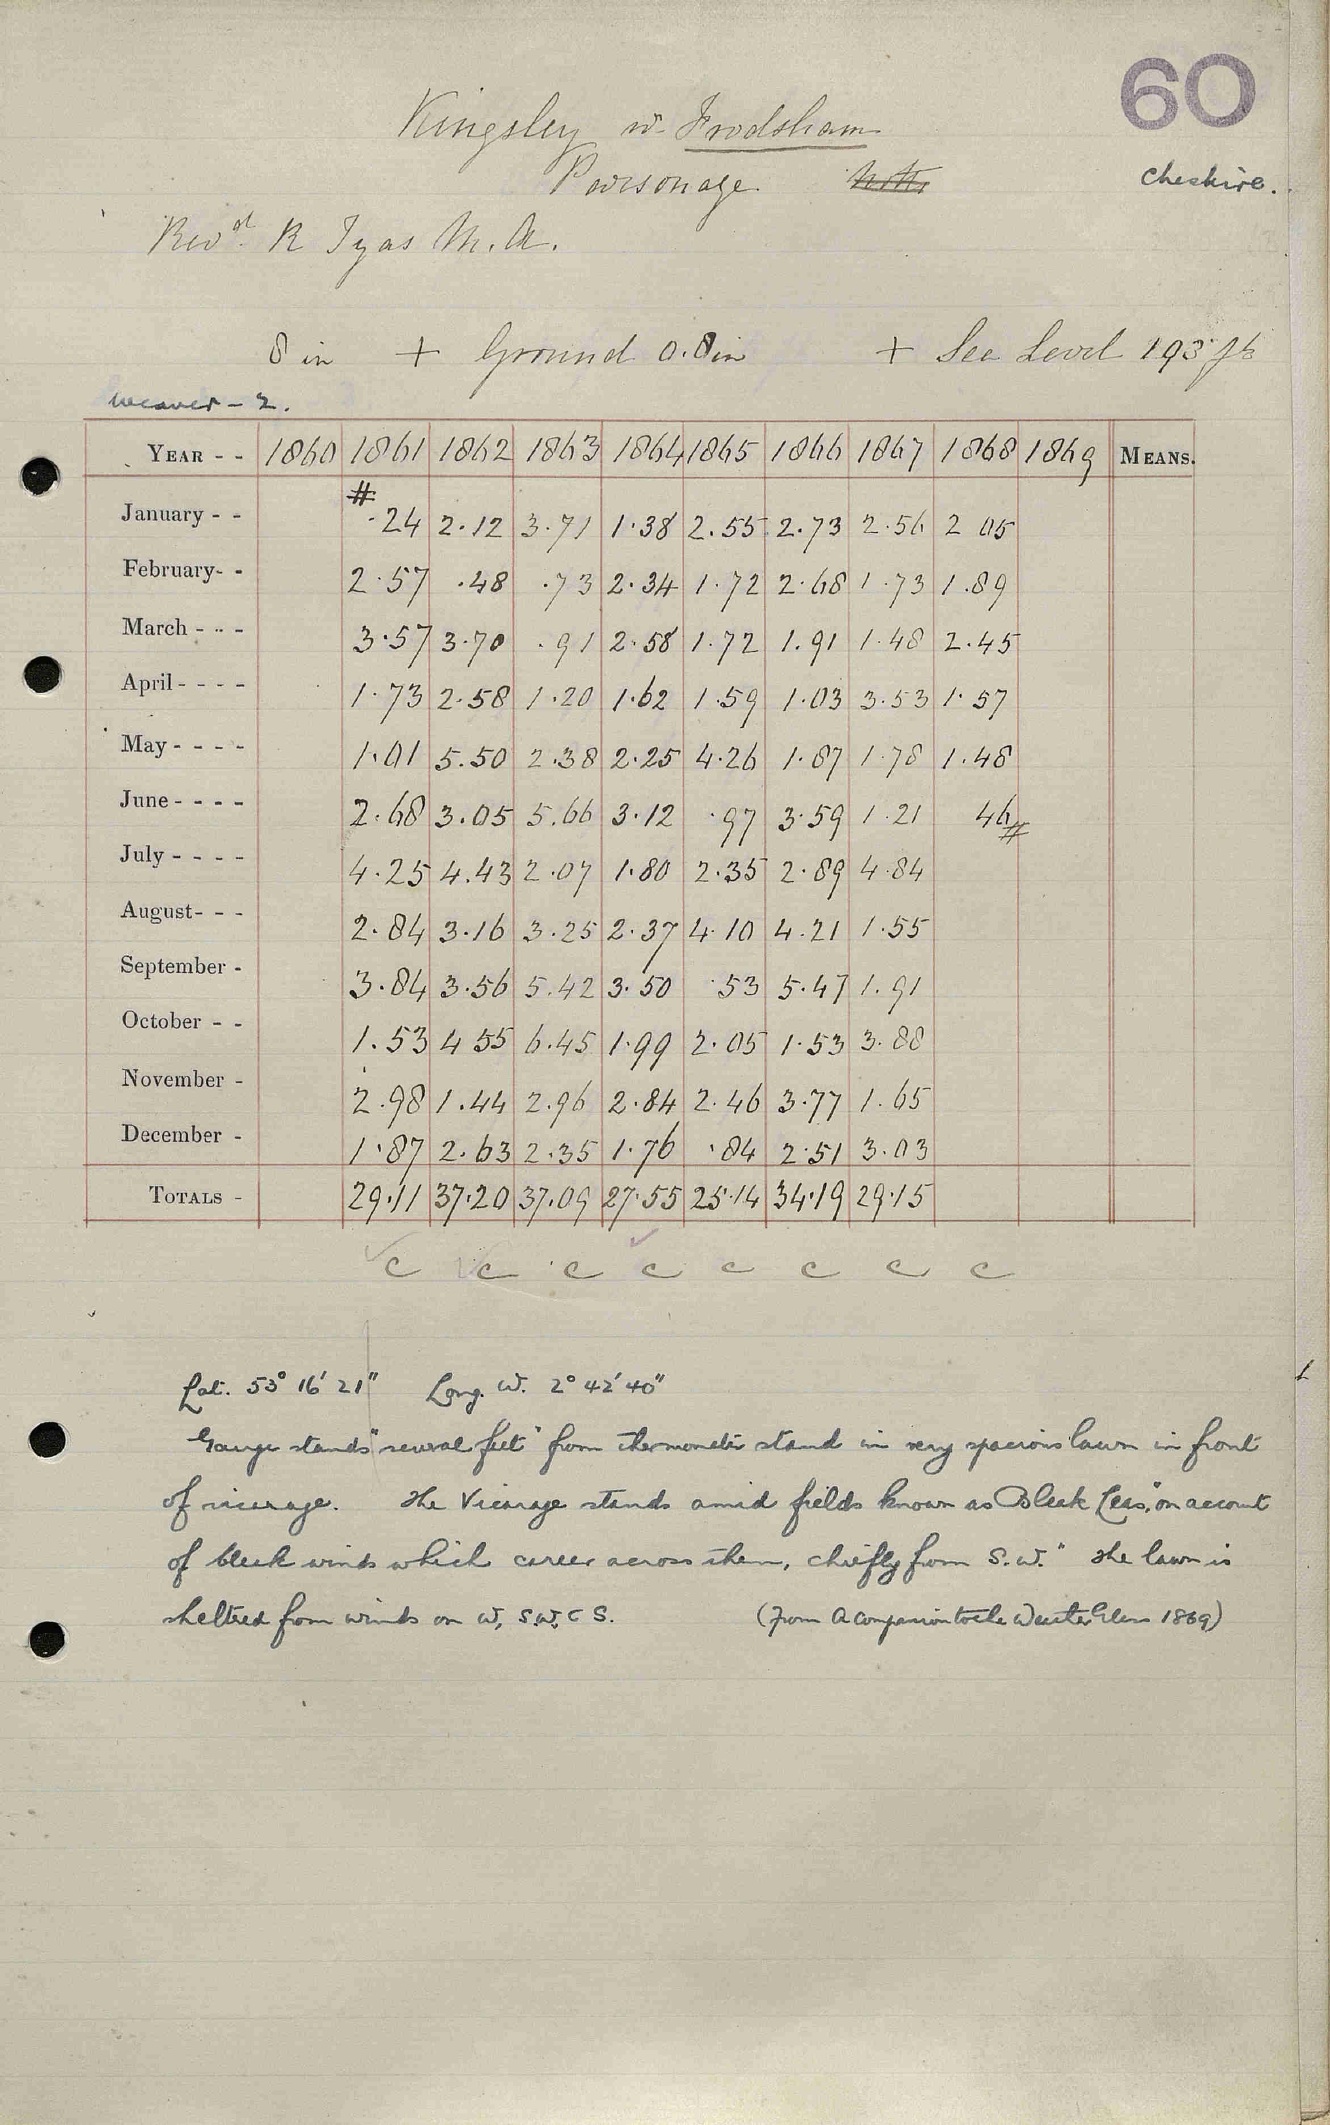 60
Kingsley nr Frodsham
Parsonage
Cheshire.
Revd. R Tyas M.A.
8 in + Ground 0.8 in + Sea Level 193 ft
Weaver - 2.
YEAR - - 1860 1861 1862 1863 1864 1865 1866 1867 1868 1869 MEANS.
#
January - - .24 2.12 3.71 1.38 2.55 2.73 2.56 2 05
February- - 2.57 .48 .73 2.34 1.72 2.68 1.73 1.89
March - - - 3.57 3.70 .91 2.58 1.72 1.91 1.48 2.45
April - - - - 1.73 2.58 1.20 1.62 1.59 1.03 3.53 1.57
May - - - - 1.01 5.50 2.38 2.25 4.26 1.87 1.78 1.48
June - - - - 2.68 3.05 5.66 3.12 .97 3.59 1.21 46 #
July - - - - 4.25 4.43 2.07 1.80 2.35 2.89 4.84
August- - - 2.84 3.16 3.25 2.37 4.10 4.21 1.55
September - 3.84 3.56 5.42 3.50 .53 5.47 1.91
October - - 1.53 4 55 6.45 1.99 2.05 1.53 3.88
November - 2.98 1.44 2.96 2.84 2.46 3.77 1.65
December - 1.87 2.63 2.35 1.76 .84 2.51 3.03
TOTALS - 29.11 37.20 37.09 27.55 25.14 34.19 29.15
c c c c c c c c
Lat. 53° 16' 21" Long. W. 2° 42' 40"
Gauge stands "several feet" from thermometer stand in very spacious lawn in front
of vicarage. The Vicarage stands amid fields known as "Bleak Leas", on account
of bleak winds which career across them, chiefly from S.W." The lawn is
sheltred from winds on W, S.W. & S. (From A Companion to the Weather Glass 1869)